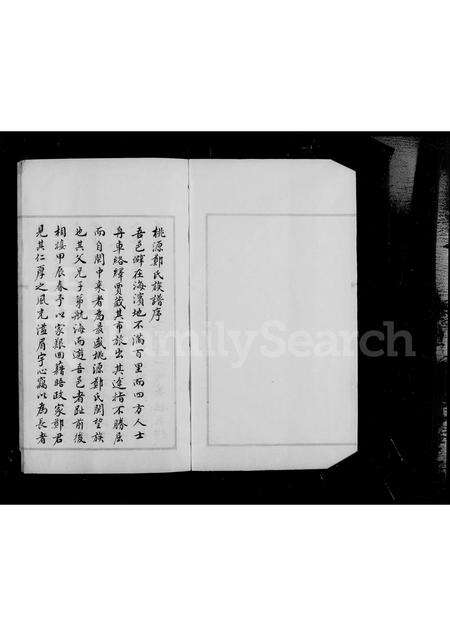 桃源鄭氏族譜序
吾邑僻在海濱地不滿百里而四方人士
舟車絡繹賈藏其市旅出其途指不勝屈
而自閩中來者為最盛桃源鄭氏閩望族
也其父兄子弟航海而遊吾邑者趾前後
相接甲辰春予以家艱回籍晤政家鄭君
見其仁厚之風充溢眉宇心竊以為長者
FamilySearch